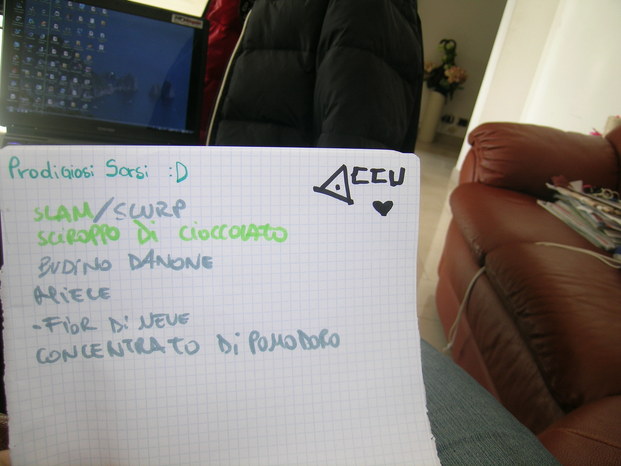 Prodigiosi Sorsi :D
ACCU
SLAM/SLURP
SCIROPPO Di CiOCCOLATO
BUDINO DANONE
MIELE
-FIOR Di NEVE
CONCENTRATO Di POMODORO